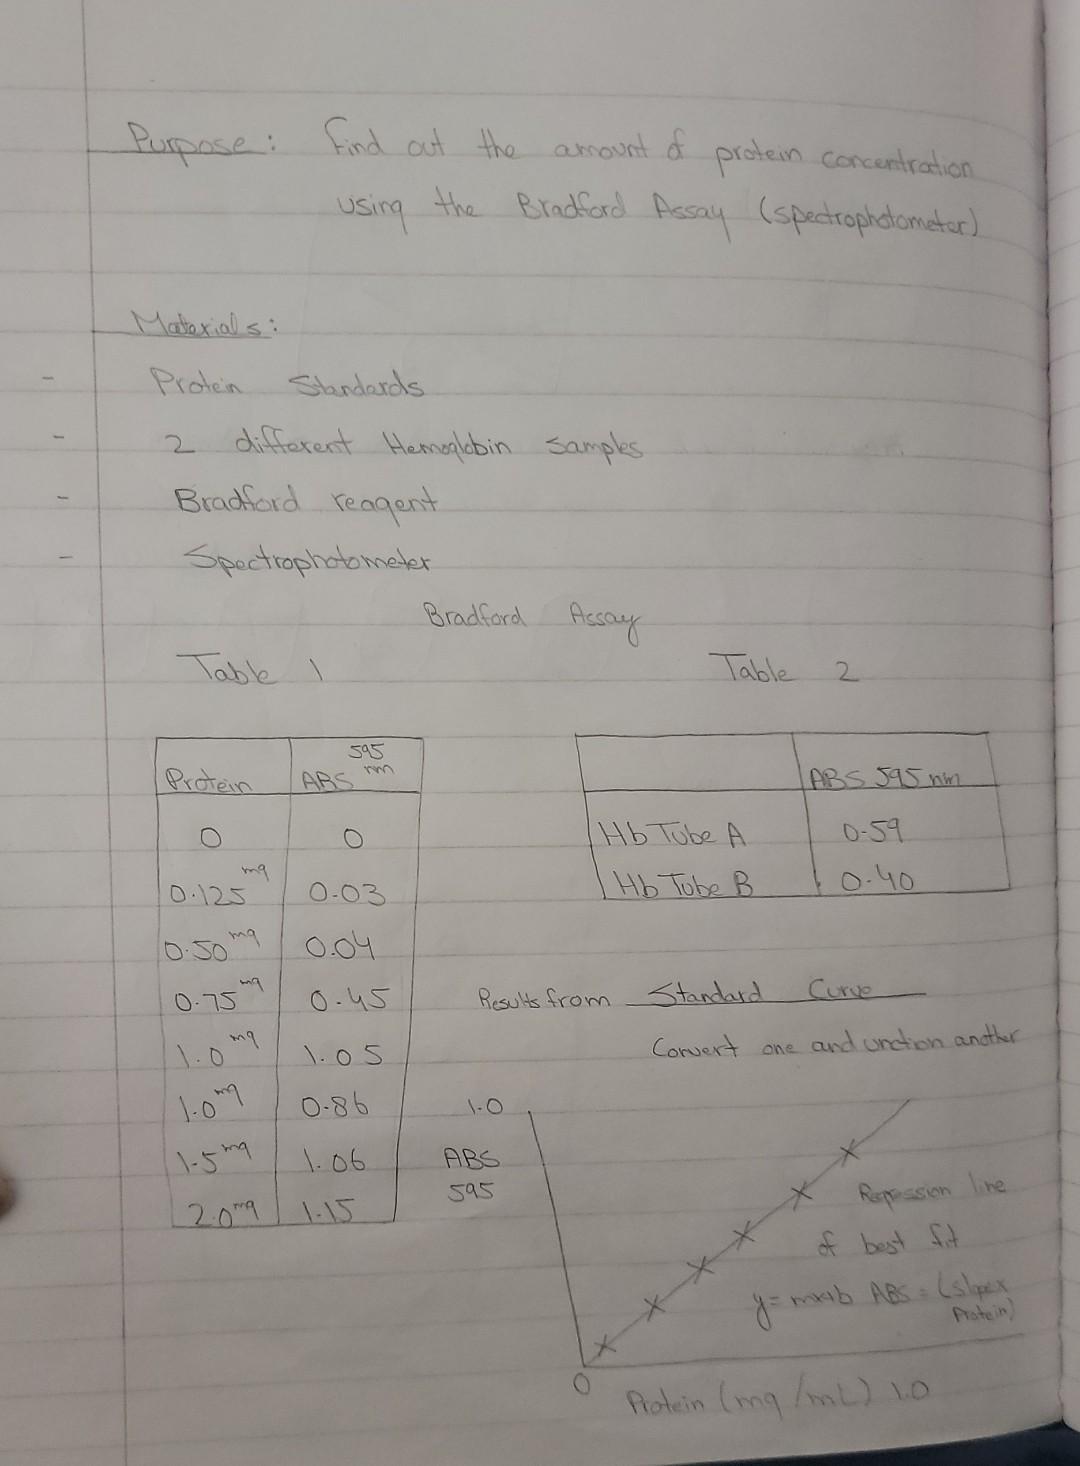 Purpose: Find out the amount of protein concentration
using the Bradford Assay (spectrophotometer)
Materials:
- Protein Standards
- 2 different Hemoglobin samples
- Bradford reagent
- Spectrophotometer
Bradford Assay
Table 1
Protein ABS 595 nm
0 0
0.125 mg 0.03
0.50 mg 0.04
0.75 mg 0.45
1.0 mg 1.05
1.0 mg 0.86
1.5 mg 1.06
2.0 mg 1.15
Table 2
ABS 595 nm
Hb Tube A 0.59
Hb Tube B 0.40
Results from Standard Curve
Convert one and another
1.0
ABS
595
Regression line
of best fit
y=mx+b ABS = (slope x
Protein)
0 Protein (mg/mL) 1.0